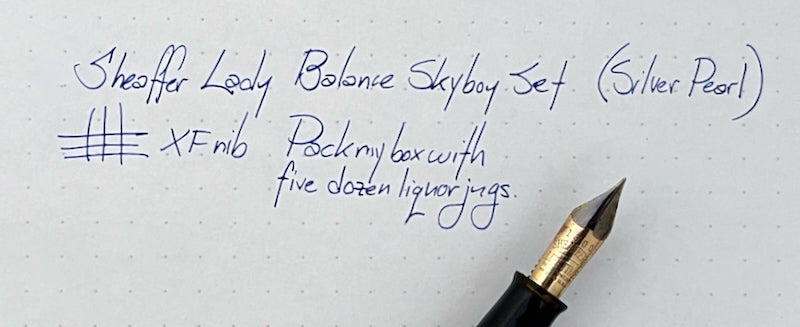 Sheaffer Lady Balance Skyboy Set (Silver Pearl)
XF nib Pack my box with
five dozen liquor jugs.